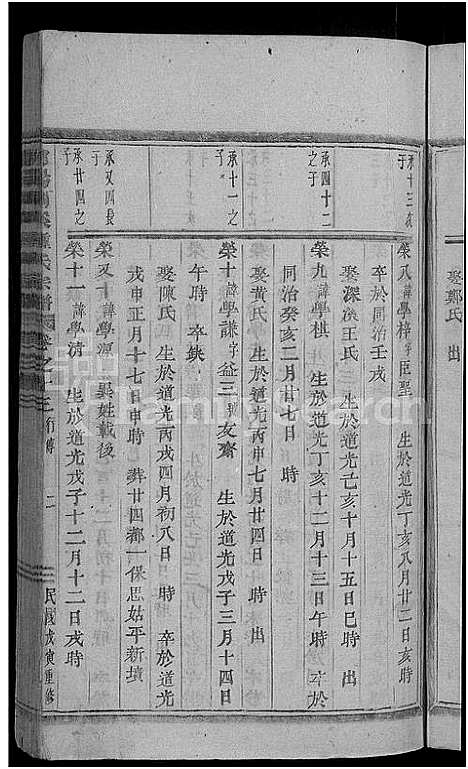 娶鄭氏 出
承十三長子
榮八諱學梓字臣聖 生於道光丁亥八月廿二日亥時
卒於同治壬戌
娶深溪王氏 生於道光己亥十月十五日巳時 出
承四十二之子
榮九諱學棋 生於道光丁亥十二月十三日午時 卒於
同治癸亥二月廿七日 時
娶黃氏 生於道光丙申七月廿四日 時 出
承十一之子
榮十諱學謙字益三號友齋 生於道光戊子三月十四日
午時 卒缺
娶陳氏 生於道光丙戌四月初八日 時 卒於道光
戊申正月十七日申時 葬廿四都一保思姑平新墳
承又四長子
榮又十諱學源 異姓載後
承廿四之子
榮十一諱學清 生於道光戊子十二月十二日戌時
氏宗譜 卷之十三 行傳 二 民國戊寅重修